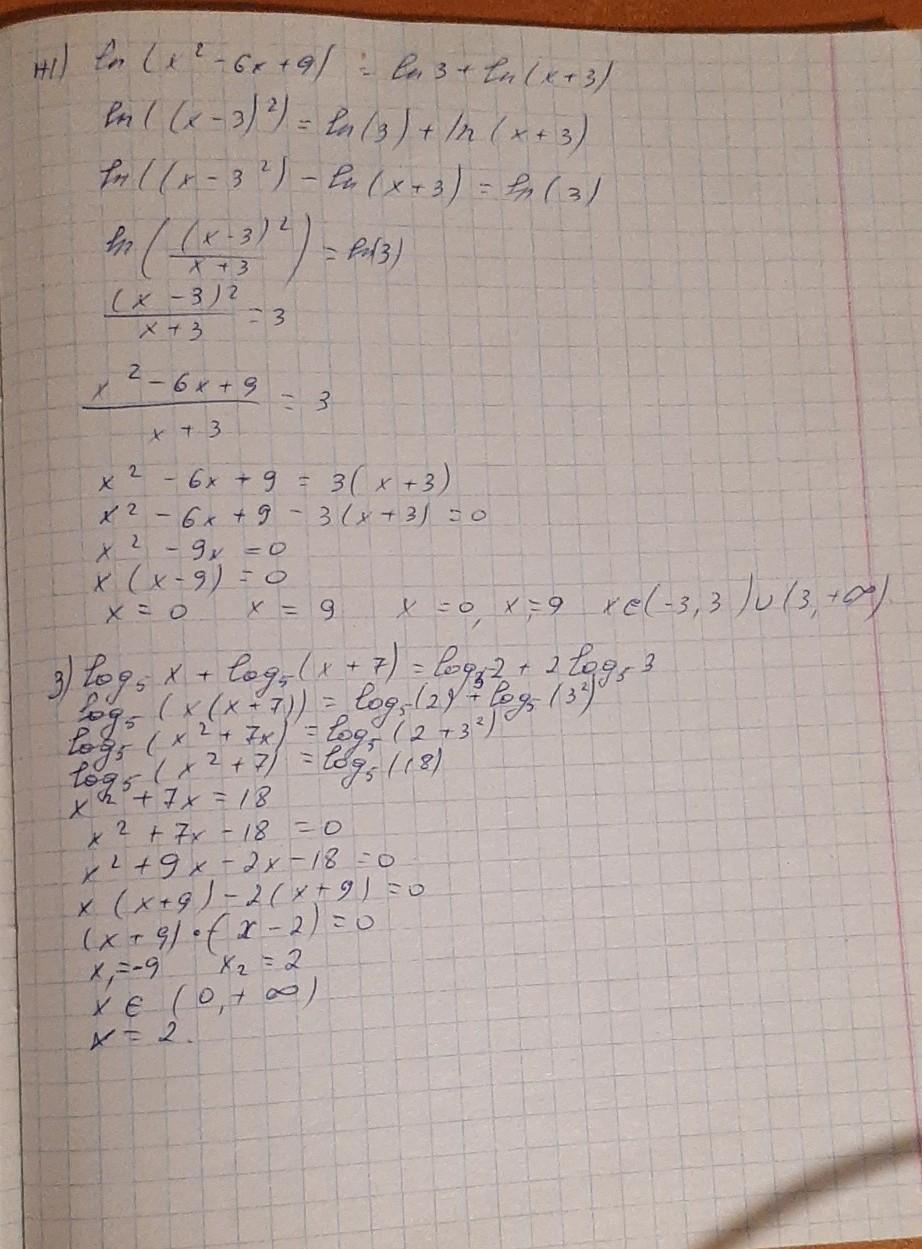 ж) ln (x² - 6x + 9) = ln 3 + ln (x + 3)
ln ((x - 3)²) = ln (3) + ln (x + 3)
ln ((x - 3²) - ln (x + 3) = ln (3)
ln ((x - 3)² / (x + 3)) = ln(3)
(x - 3)² / (x + 3) = 3
(x² - 6x + 9) / (x + 3) = 3
x² - 6x + 9 = 3(x + 3)
x² - 6x + 9 - 3(x + 3) = 0
x² - 9x = 0
x (x - 9) = 0
x = 0 x = 9 x = 0, x = 9 x ∈ (-3, 3) ∪ (3, +∞)
з) log₅ x + log₅ (x + 7) = log₅ 2 + 2 log₅ 3
log₅ (x (x + 7)) = log₅ (2) + log₅ (3²)
log₅ (x² + 7x) = log₅ (2 + 3²)
log₅ (x² + 7) = log₅ (18)
x² + 7x = 18
x² + 7x - 18 = 0
x² + 9x - 2x - 18 = 0
x (x + 9) - 2 (x + 9) = 0
(x + 9) • (x - 2) = 0
x₁ = -9 x₂ = 2
x ∈ (0, + ∞)
x = 2.